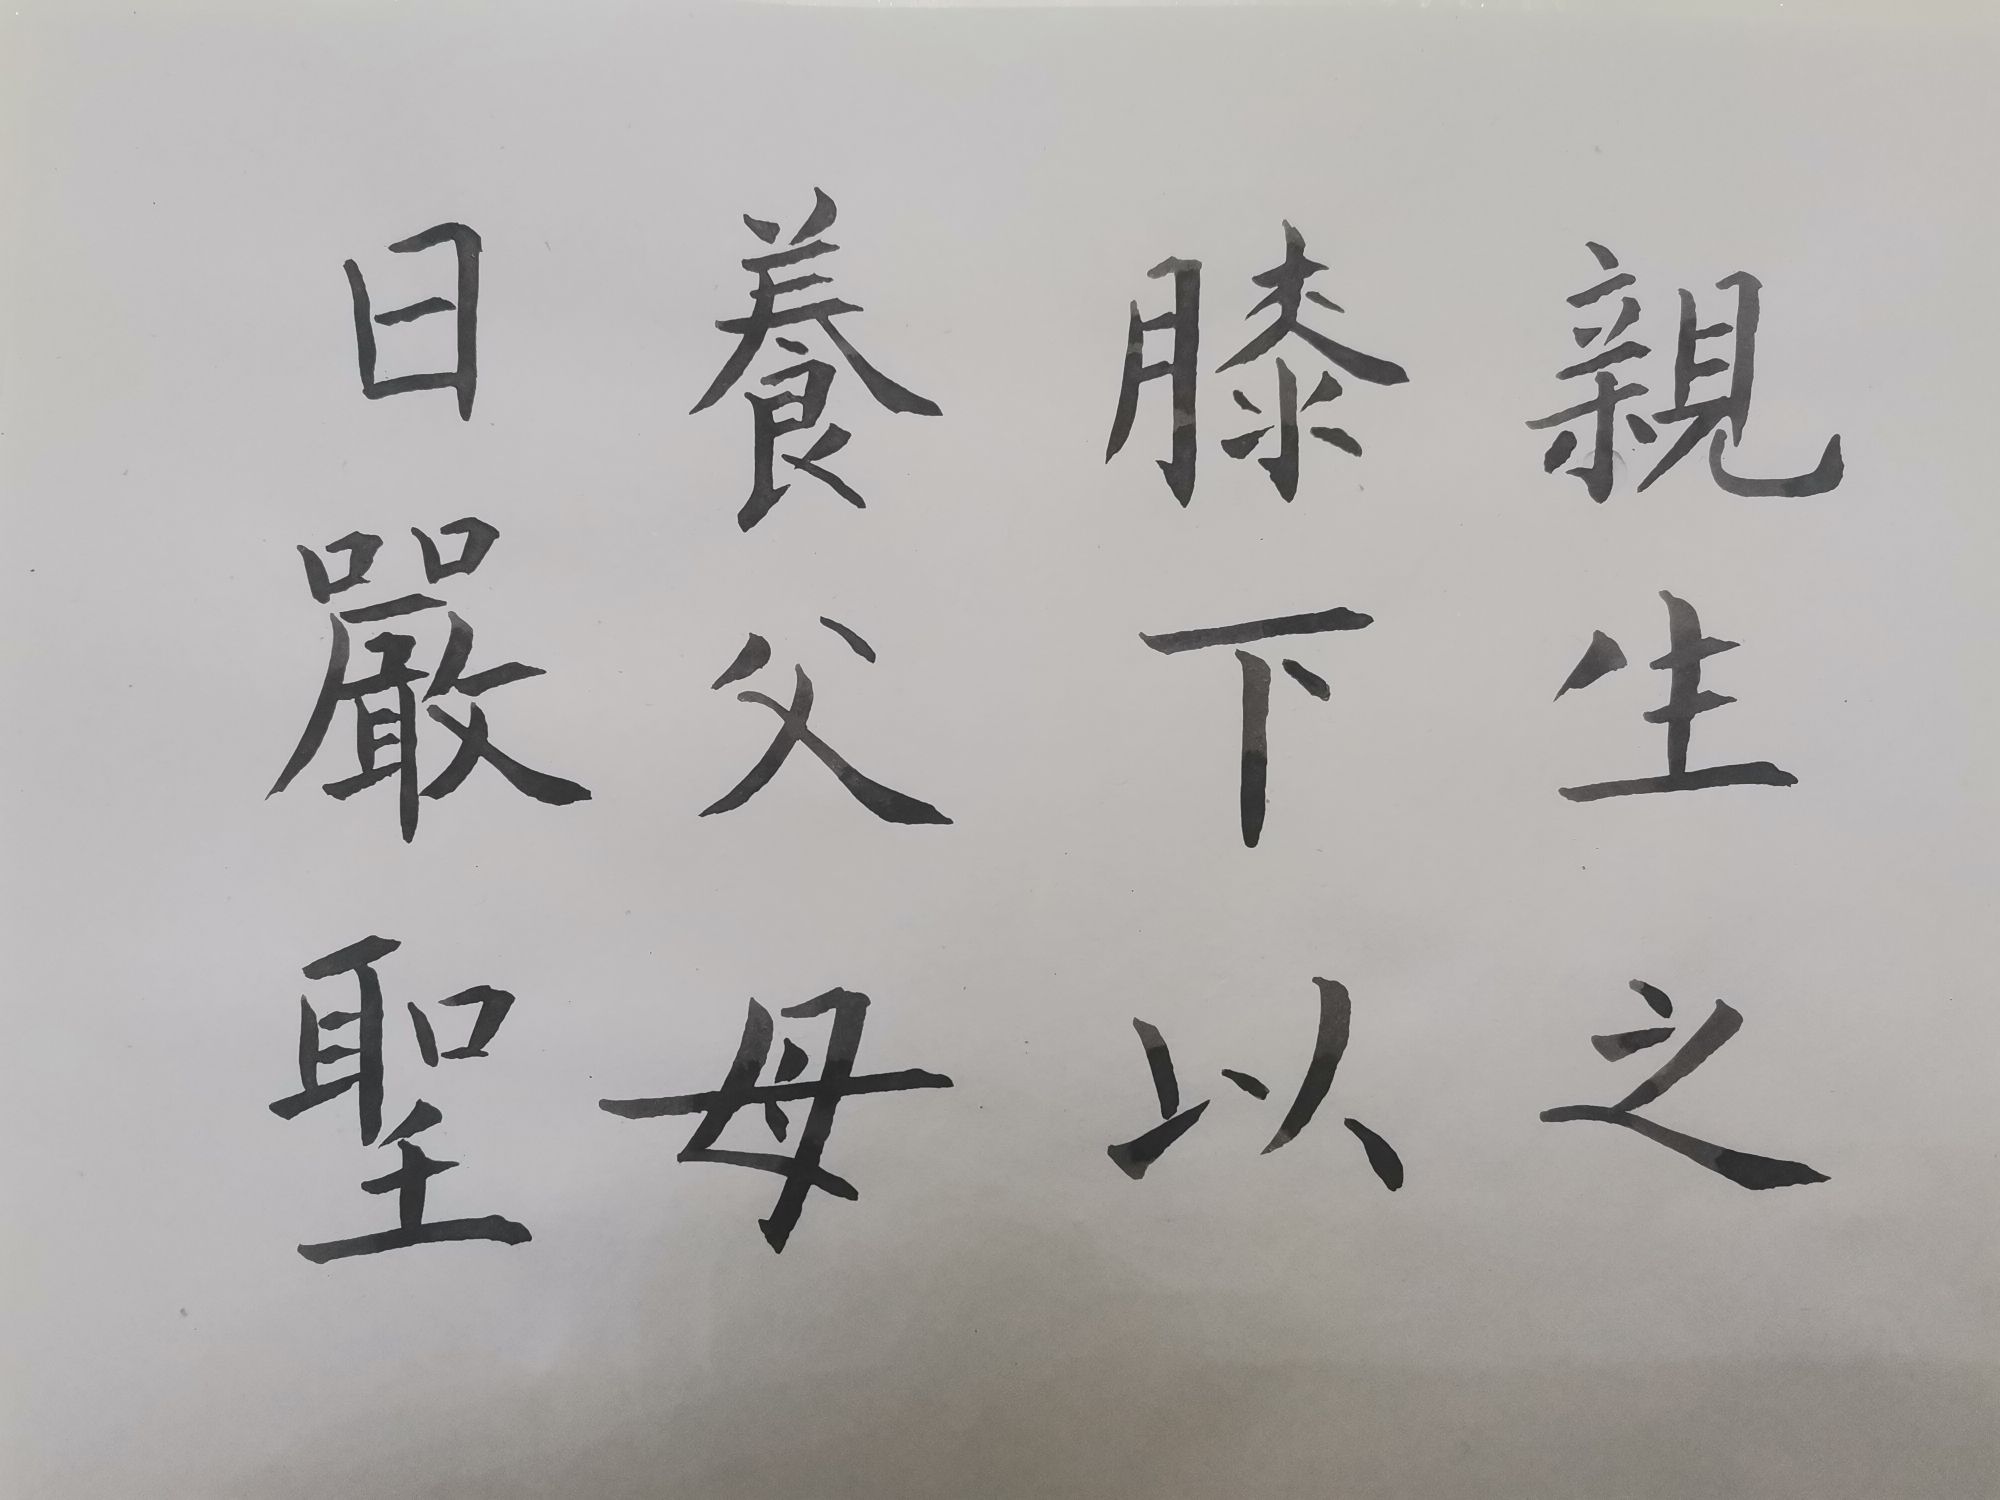 親生之
膝下以
養父母
日嚴聖